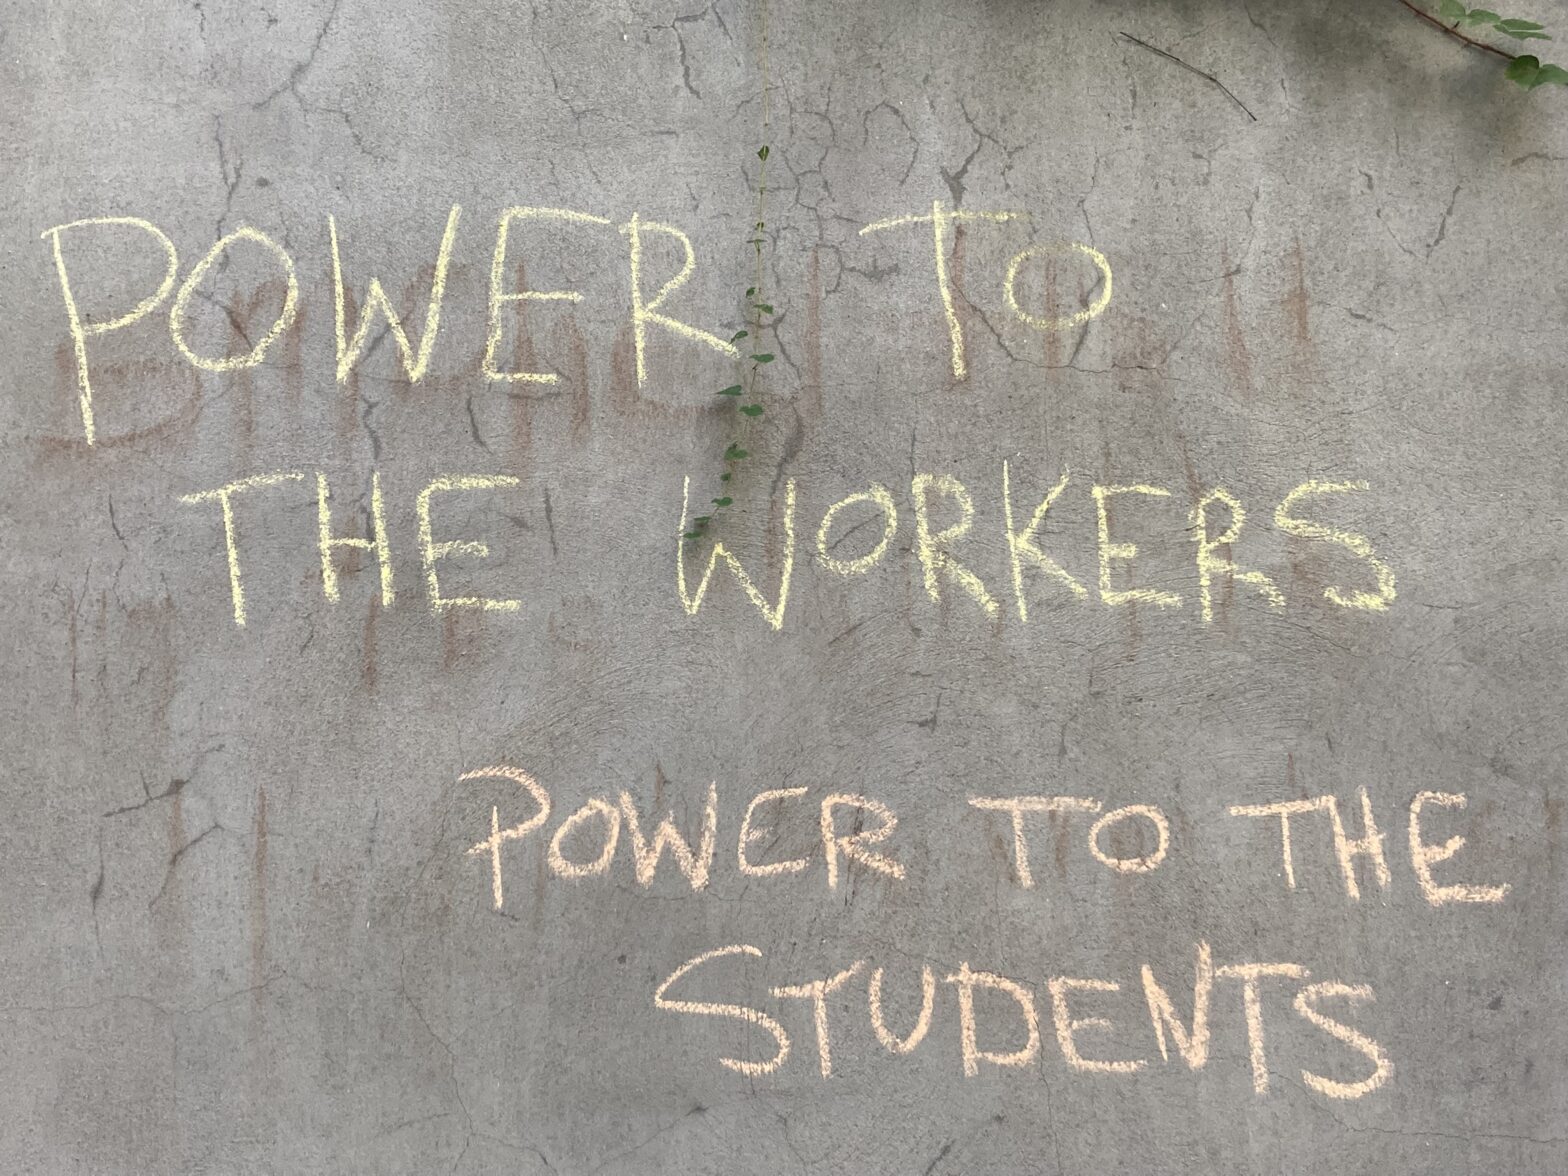 POWER TO
THE WORKERS
POWER TO THE
STUDENTS